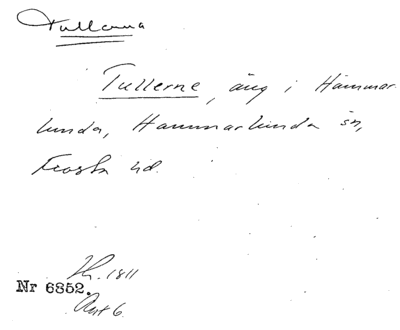 Tullerna
Tullerne, äng i Hammar-
lunda, Hammarlunda sn,
Frosta hd.
Nr 6852.
Akt 6.